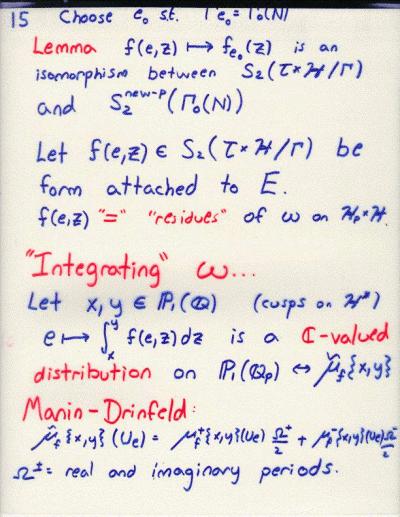 15 Choose e₀ s.t. Γe₀ = Γ₀(N)
Lemma f(e,z) ↦ fe₀(z) is an
isomorphism between S₂(τ×ℋ/Γ)
and S₂ⁿᵉʷ⁻ᵖ(Γ₀(N))
Let f(e,z) ∈ S₂(τ×ℋ/Γ) be
form attached to E.
f(e,z) "=" "residues" of ω on ℋp×ℋ.
"Integrating" ω...
Let x,y ∈ ℙ₁(ℚ) (cusps on ℋ*)
e ↦ ∫ₓʸ f(e,z)dz is a ℂ-valued
distribution on ℙ₁(ℚp) ↔ μ̃f{x,y}
Manin-Drinfeld:
μ̃f{x,y}(Ue) = μf⁺{x,y}(Ue) Ω⁺/2 + μf⁻{x,y}(Ue) Ω⁻/2
Ω± = real and imaginary periods.